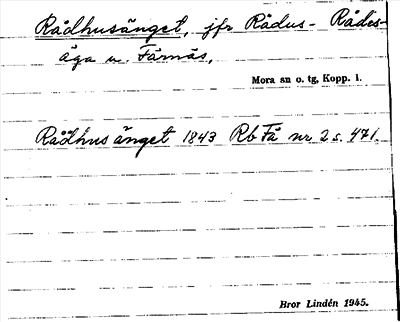 Rådhusänget, jfr Rådus- Rådes-
äga u. Färnäs,
Mora sn o. tg, Kopp. l.
Rådhusänget 1843 Rb Få nr 2 s. 471.
Bror Lindén 1945.